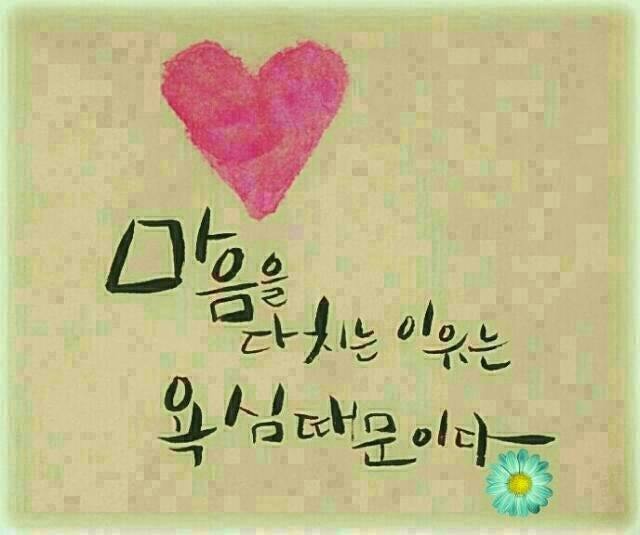 마음을
다치는 이유는
욕심때문이다